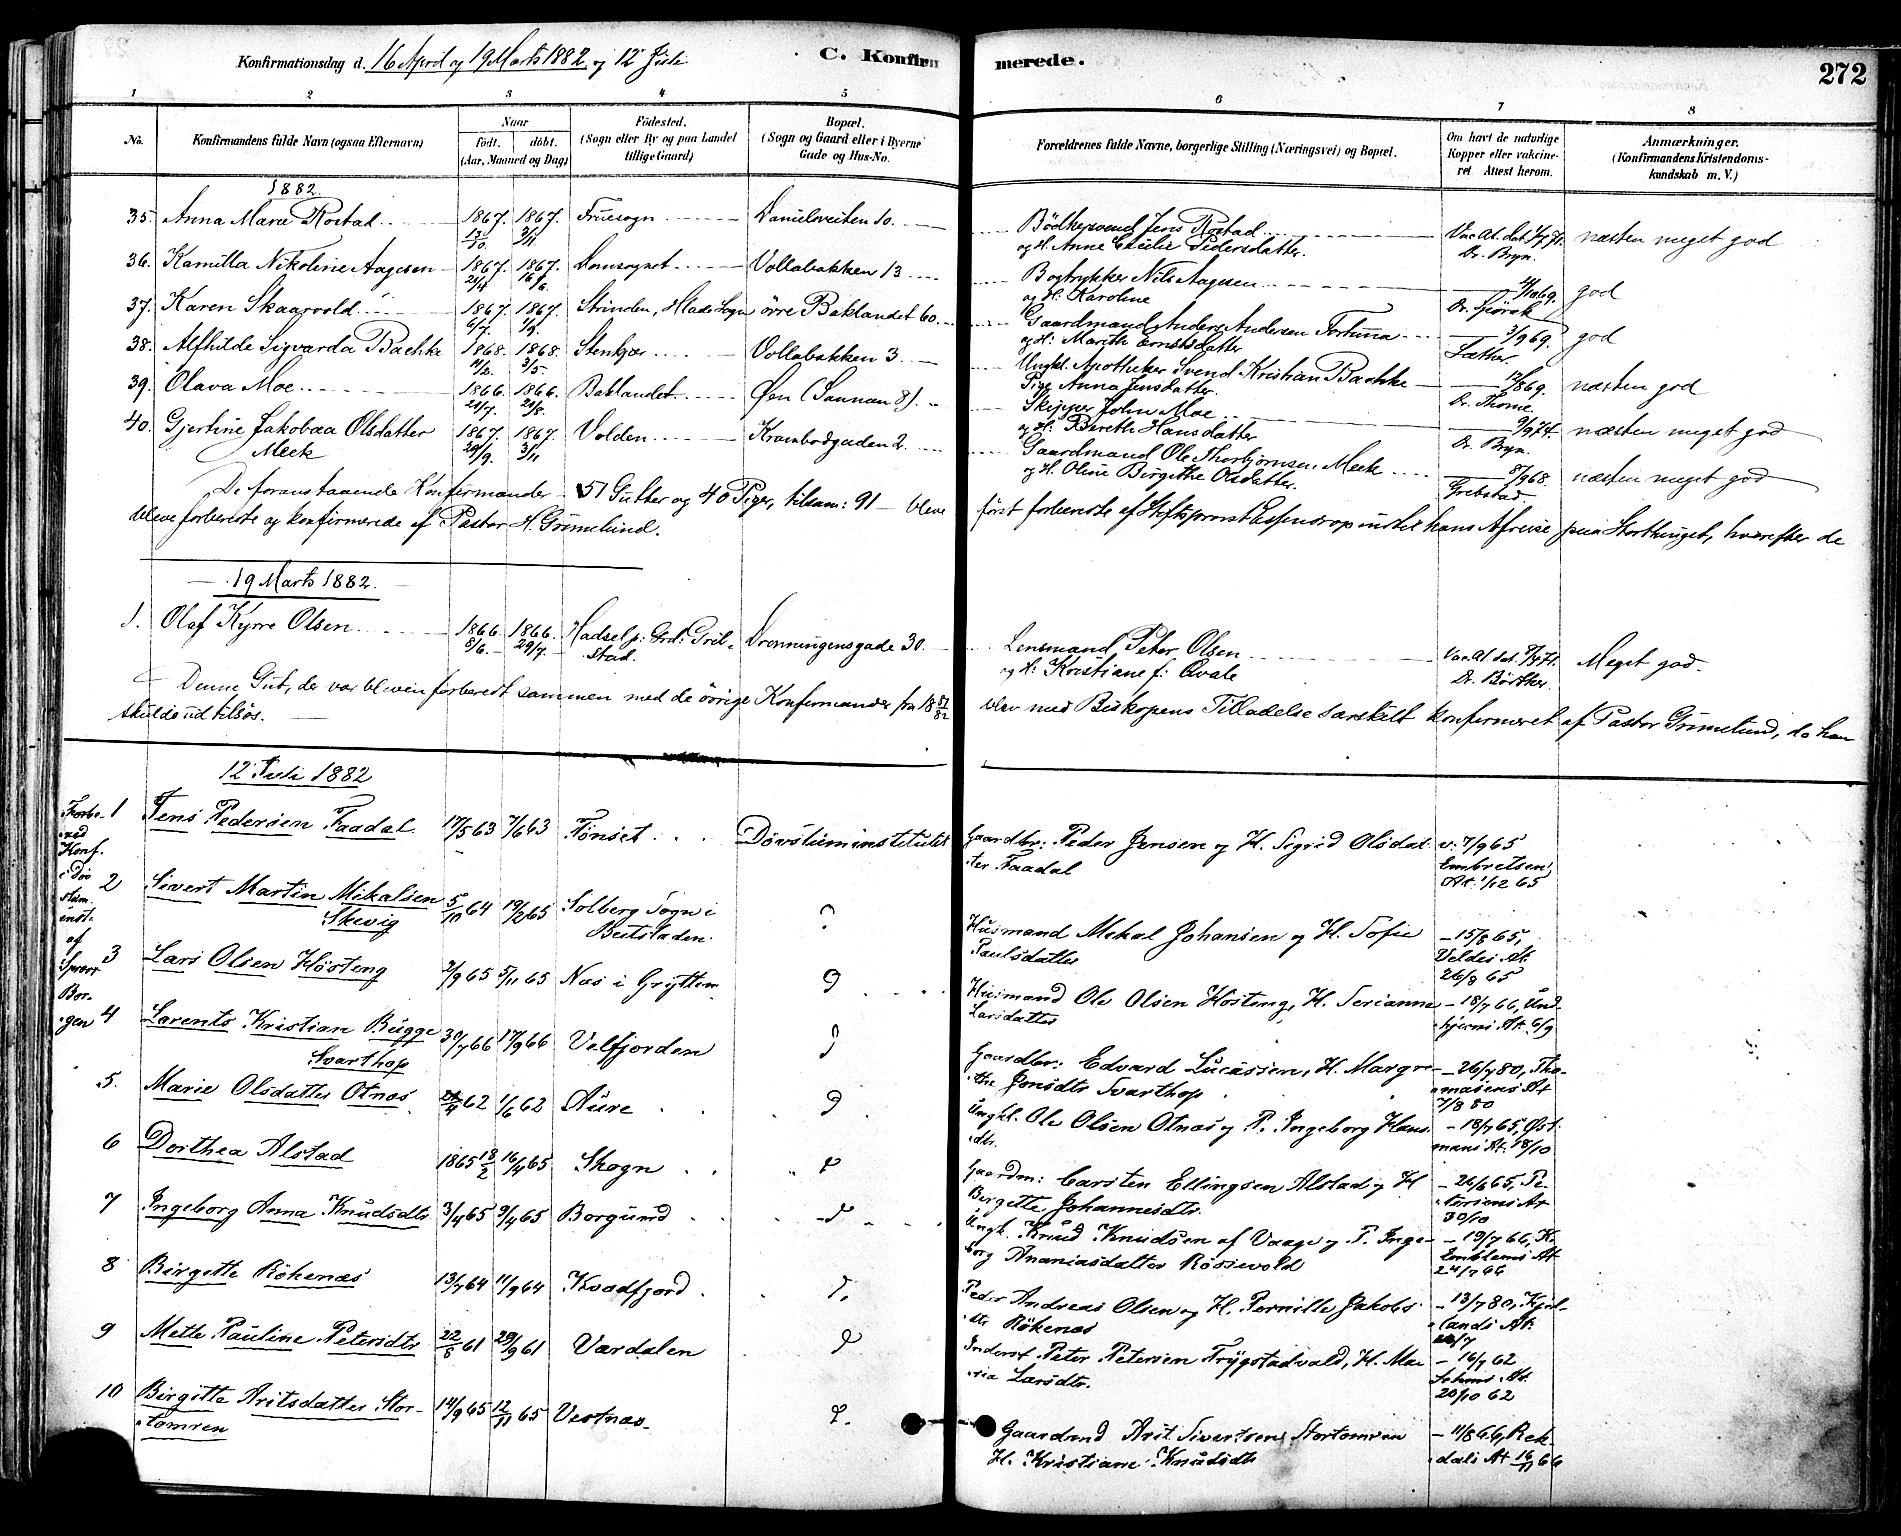 Konfirmationsdag d. 16 April og 19 Marts 1882 og 12 Juli
C. Konfirmerede.
272
1 2 3 4 5 6 7 8
No.
Konfirmandens fulde Navn (ogsaa Efternavn)
Naar
født. døbt.
(Aar, Maaned og Dag)
Fødested.
(Sogn eller By og paa Landet
tillige Gaard)
Bopæl.
(Sogn og Gaard eller i Byerne
Gade og Hus-No.
Forældrenes fulde Navne, borgerlige Stilling (Næringsvei) og Bopæl.
Om havt de naturlige
Kopper eller vakcine-
ret Attest herom.
Anmærkninger.
(Konfirmandens Kristendoms-
kundskab m. V.)
1882.
35. Anna Marie Rostad 1867. 13/10. 1867. 3/11. Fruesogn Danielsveiten 10. Bödkersvend Jens Rostad og H. Anne Cecilie Pedersdatter. Dr. Bryn. næsten meget god
36. Kamilla Nikoline Aagesen 1867. 21/4. 1867. 16/6. Domsognet Vollabakken 13 Bogtrykker Nils Aagesen og H. Karoline god
37. Karen Skaarvold 1867. 6/7. 1867. Strinden, Hlade Sogn övre Baklandet 60. Gaardmand Anders Andersen Fortuna og H: Marith Ernstsdatter 3/9 69. god
38. Alfhilde Sigvarda Bachke 1868. 11/2. 1868. 3/5. Stenkjær Vollabakken 3. Ungkl. Apotheker Svend Kristian Bachke Pige Anna Jensdatter Dr. Thorne. næsten god
39. Olava Moe 1866. 21/7. 1866. 21/8. Baklandet Øen (Sannan 8). Skipper John Moe og H: Bereth Hansdatter 9/9 74. Dr. Bryn. næsten meget god
40. Gjertine Jakobæa Olsdatter Meek 1867. 29/9. 1867. 3/11. Volden Krambodgaden 2. Gaardmand Ole Thorbjørnsen Meek og H. Oline Birgithe Olsdatter. 8/9 68. Grebstad. næsten meget god
De foranstaaende Konfirmander 51 Gutter og 40 Piger, tilsam: 91 — bleve først forberedte af Stiftsprovst Essendrop indtil hans Afreise paa Storthinget, hvorefter de
bleve forberedte og konfirmerede af Pastor H. Grimelund.
19 Marts 1882.
1. Olaf Kyrre Olsen 1866. 8/6. 1866. 29/7. Hadselp: Grd: Gril-stad. Dronningensgade 30. Lensmand Peter Olsen og H: Kristiane f: Qvale Meget god.
Denne Gut, der var bleven forberedt sammen med de övrige Konfirmander fra 18 81/82 blev med Biskopens Tilladelse særskilt konfirmeret af Pastor Grimelund, da han
skulde ud tilsøs.
12 Juli 1882
Forbe-
red
Konf.
i Døv
stum.
inst.
af
Sporr
Bor-
gen
1 Jens Pedersen Faadal 17/5 63 7/6 63 Tönset Dövstuminstitutet Gaardbr: Peder Jensen og H. Sigrid Olsdat-ter Faadal v: 7/9 65 Embretsen, At. 1/12 65
2 Sivert Martin Mikalsen Skevig 5/10 64 19/2 65 Solberg Sogn i Beitstaden. Husmand Mekal Johansen og H. Sofie Paulsdatter — 15/8 65, Veldes At. 26/8 65
3 Lars Olsen Hösteng 2/9 65 5/11 65 Næs i Grytten Husmand Ole Olsen Hösteng, H. Serianne Larsdatter — 18/7 66, Und-hjems At. 6/9
4 Larents Kristian Bugge Svarthop 30/7 66 17/9 66 Velfjorden Gaardbr: Edvard Lucassen, H. Margre-the Jonsdtr Svarthop — 26/7 80, Tho-masens At 7/8 80
5. Marie Olsdatter Otnæs 62 1/6 62 Aure Ungkl. Ole Olsen Otnæs og P. Ingeborg Hans-dtr. — 18/7 65, Öst-mans At. 18/10
6 Dorthea Alstad 1865 18/2 16/4 65 Skogn Gaardm: Carsten Ellingsen Alstad og H Birgette Johannesdtr. — 26/6 65, Pe-tersens At 30/10
7 Ingeborg Anna Knudsdtr 3/4 65 9/4 65 Borgund Ungk. Knud Knudsen af Vaage og P. Inge-borg Ananiasdatter Rösevold — 19/7 66, K. Emblems At 24/7 66
8 Birgitte Rökenæs 13/7 64 11/9 64 Kvædfjord Peder Andreas Olsen og H. Pernille Jakobs-dtr Rökenæs — 13/7 80, Kjel-lands At.
9 Mette Pauline Petersdtr 22/8 61 29/9 61 Værdalen Inderst Peter Petersen Trygstadvald, H. Ma-ria Larsdtr. — 16/7 62 At. 20/10 62
10 Birgitte Aritsdatter Stor-tomren 14/9 65 12/11 65 Vestnæs Gaardmd Arit Sivertsen Stortomren H. Kristiane Knudsdtr — 11/8 66, Rek-dals At 16/11 66